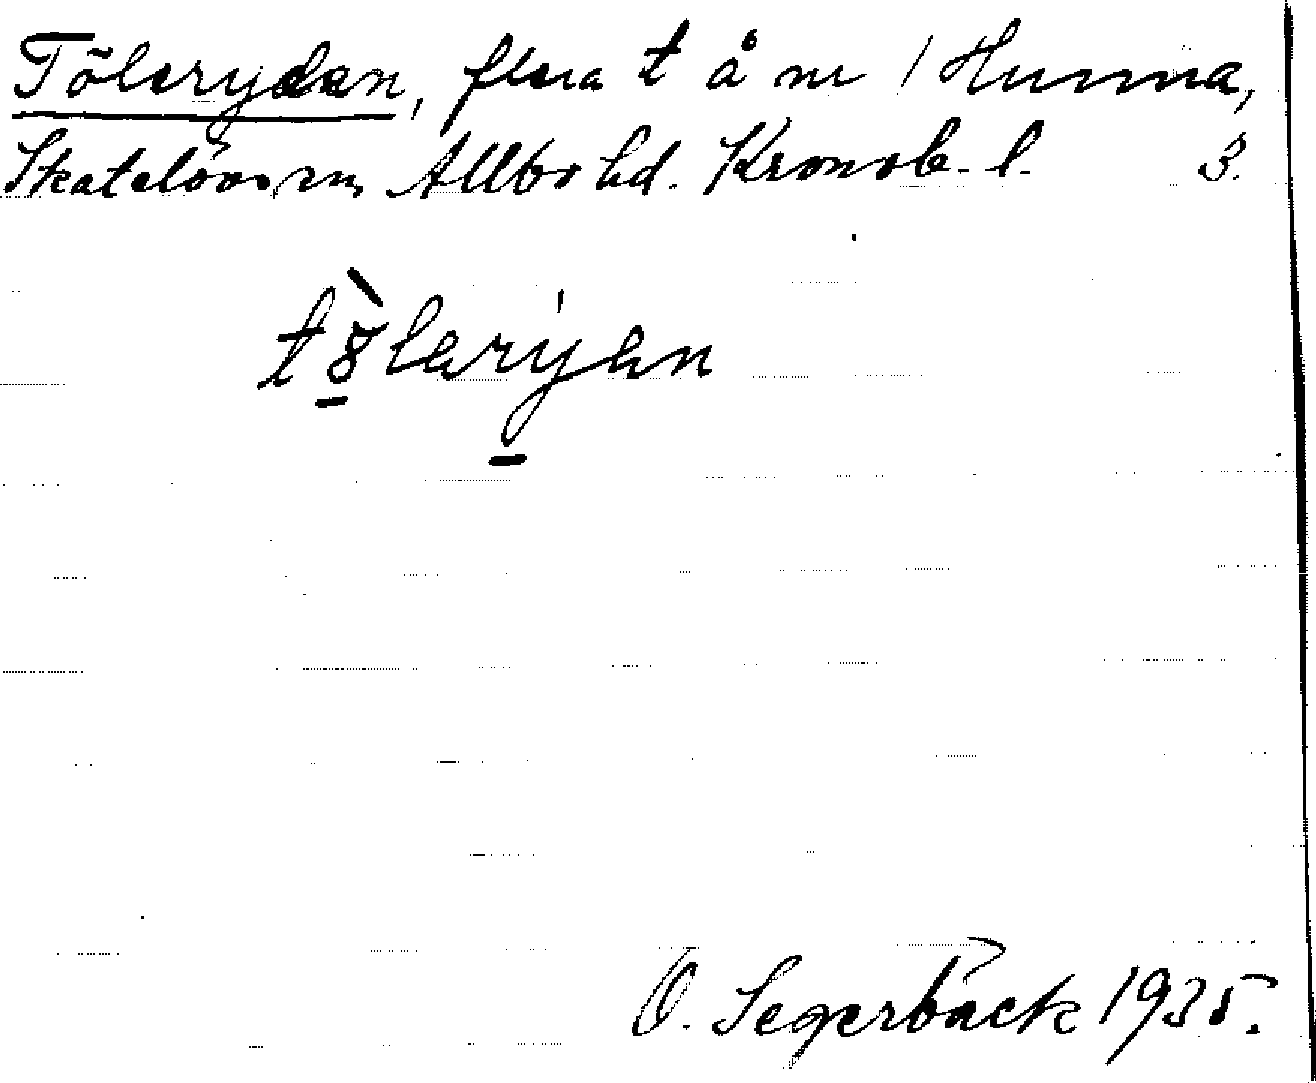 Tölerydan, flera t å nr 1 Hunna,
Skatelövs sn, Allbo hd. Kronob. l. 3.
tölaryan
O. Segerbäck 1935.